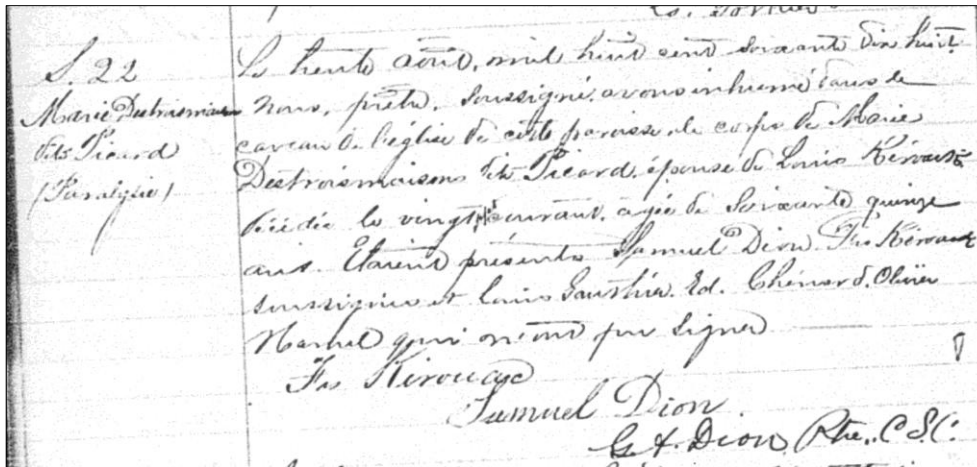 S. 22
Marie Destroismaisons
dite Picard
(Paralysie)
Le trente août, mil huit cent soixante dix huit
Nous, prêtre, soussigné, avons inhumé dans le
caveau de l'église de cette paroisse, le corps de Marie
Destroismaisons dite Picard, épouse de Louis Kérouack
décédée le vingt courant, agée de soixante quinze
ans. Etaient présents Samuel Dion Frs Kérouack
soussignés et Louis Gauthier. Ed. Chénard. Olivier
qui n'ont pu signer
Frs Kérouack
Samuel Dion.
G. A. Dion Ptre., C S C.